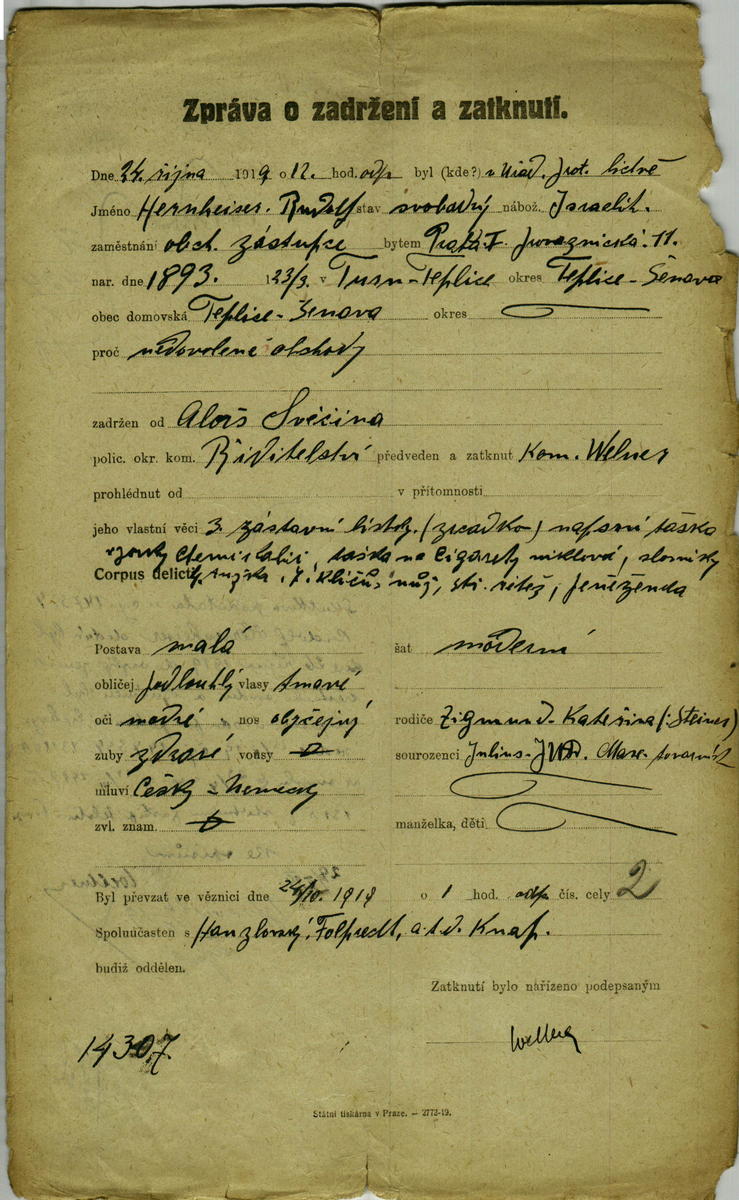 Zpráva o zadržení a zatknutí.
Dne 24. října 1919 o 12. hod. odp. byl (kde?) v úřad. prot. lichvě
Jméno Hernheiser. Rudolf stav svobodný nábož. Israelit.
zaměstnání obch. zástupce bytem Praha I. Provaznická. 11.
nar. dne 1893. 23/3. v Turn-Teplice okres Teplice-Šenava
obec domovská Teplice-Šenava okres
proč nedovolené obchody
zadržen od Alois Svěčina
polic. okr. kom. Ředitelství předveden a zatknut Kom. Welner
prohlédnut od v přítomnosti
jeho vlastní věci 3 zástavní lístky. (zrcadko) napsaní taška
taška na Cigarety niklová,
Corpus delicti 7. klíčů, nůž, řetěz, peněženka
Postava malá šat moderní
obličej podlouhlý vlasy tmavé
oči modré nos obyčejný rodiče Zigmund-Kateřina (:Steiner)
zuby zdravé vousy sourozenci Julius-JUDr. Marx-továrník
mluví Česky-Německy
zvl. znam. manželka, děti
Byl převzat ve věznici dne 24/10. 1919 o 1 hod. odp. čís. cely 2
Spoluúčasten s Hanzlovský, Folprecht, a.t.d. Knap.
budiž oddělen.
Zatknutí bylo nařízeno podepsaným
14307. Wellner
Státní tiskárna v Praze. — 2772-19.